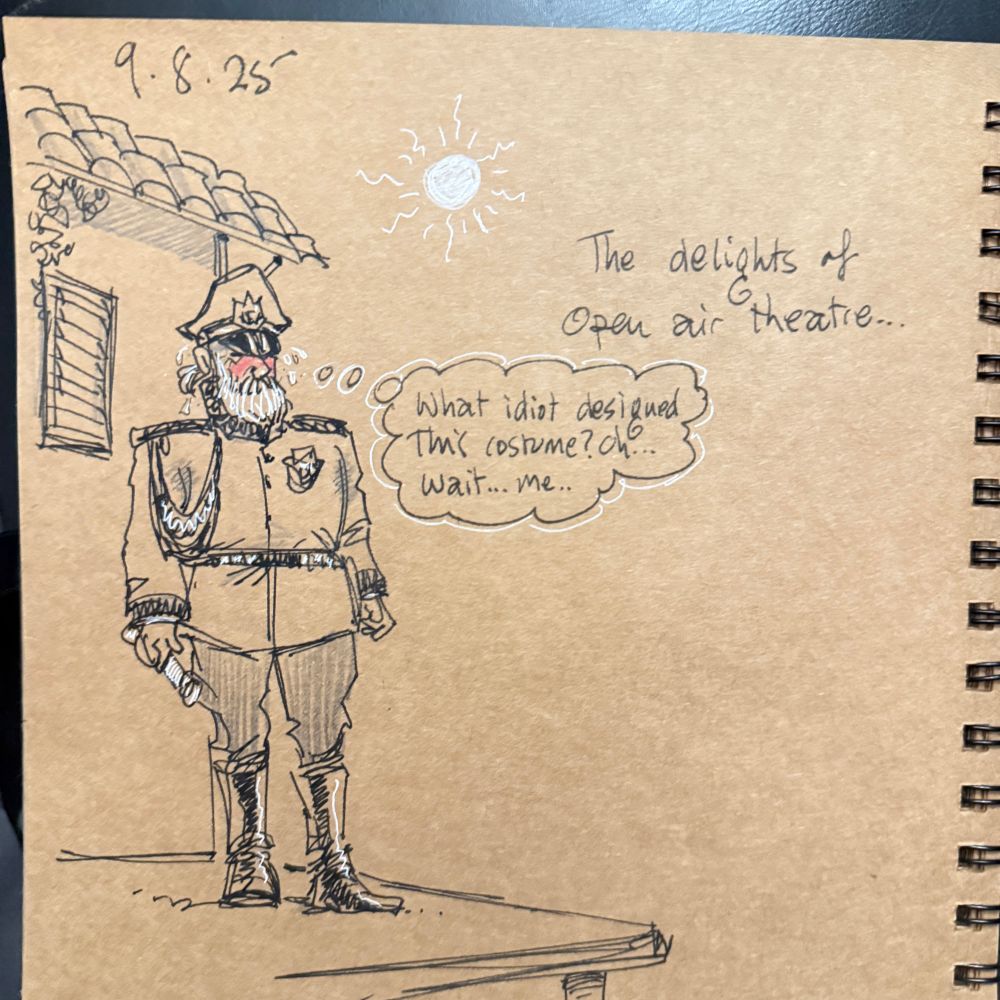 9.8.25
The delights of
Open air theatre...
What idiot designed
This costume? Oh...
Wait... Me..